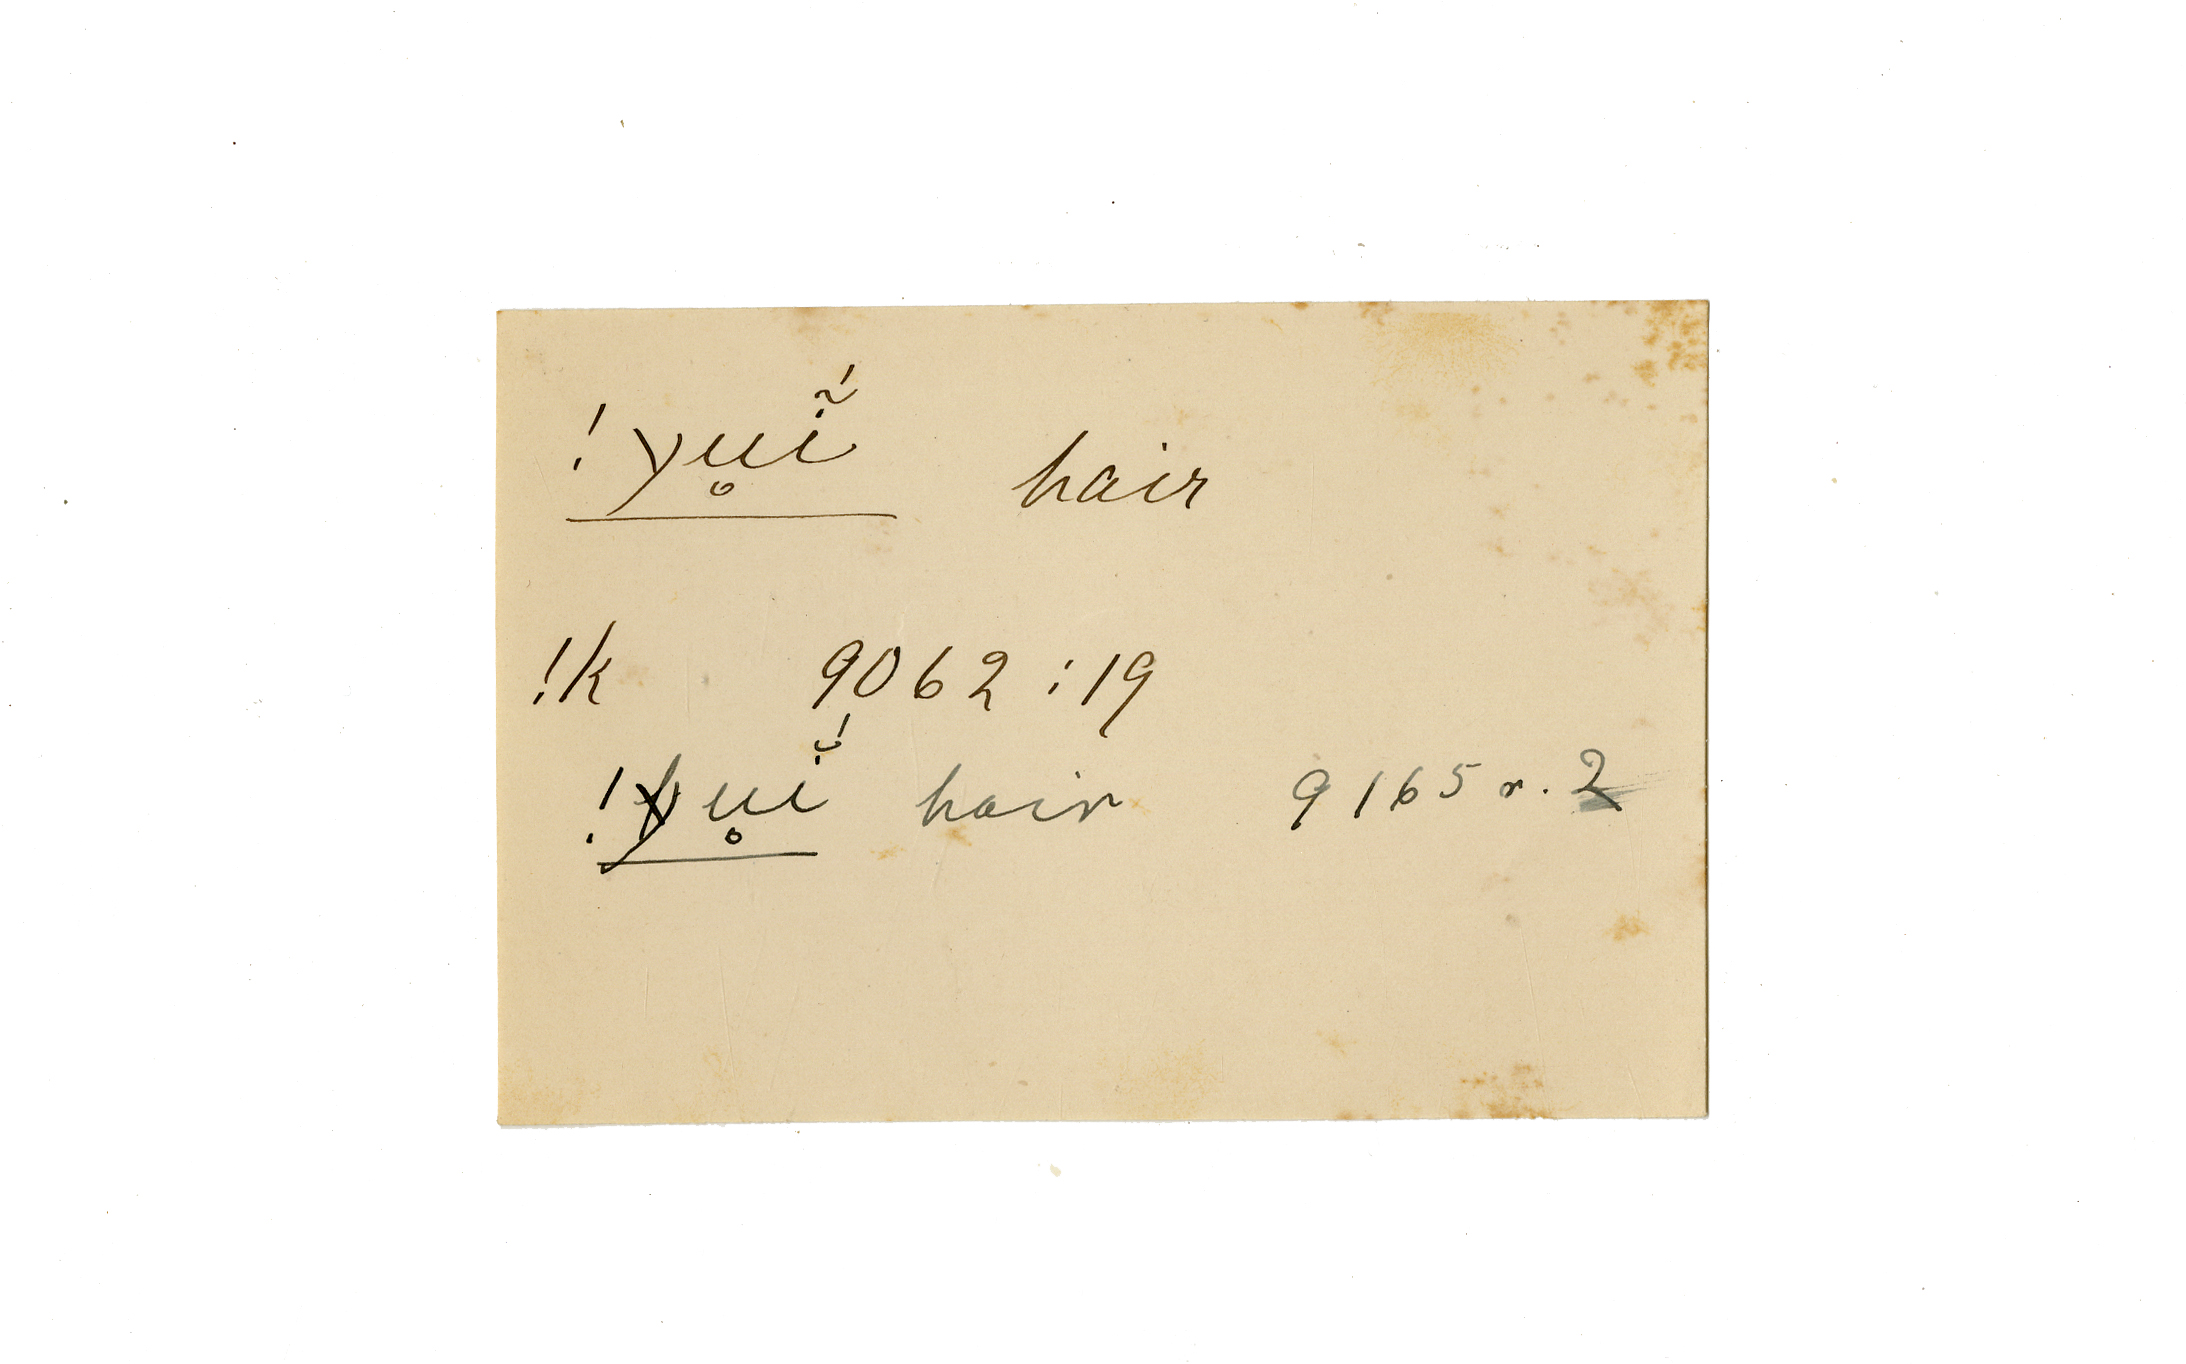 !χu̥ĩ́ hair
!k 9062 : 19
!χu̥ĭ́ hair 9165 r. 2